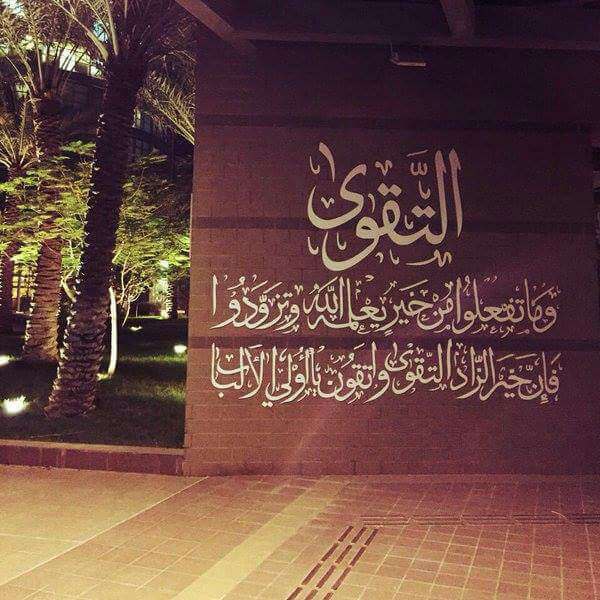 التَّقوى
وَمَا تَفْعَلُوا مِنْ خَيْرٍ يَعْلَمْهُ اللَّهُ وَتَزَوَّدُوا
فَإِنَّ خَيْرَ الزَّادِ التَّقْوَى وَاتَّقُونِ يَا أُولِي الْأَلْبَابِ